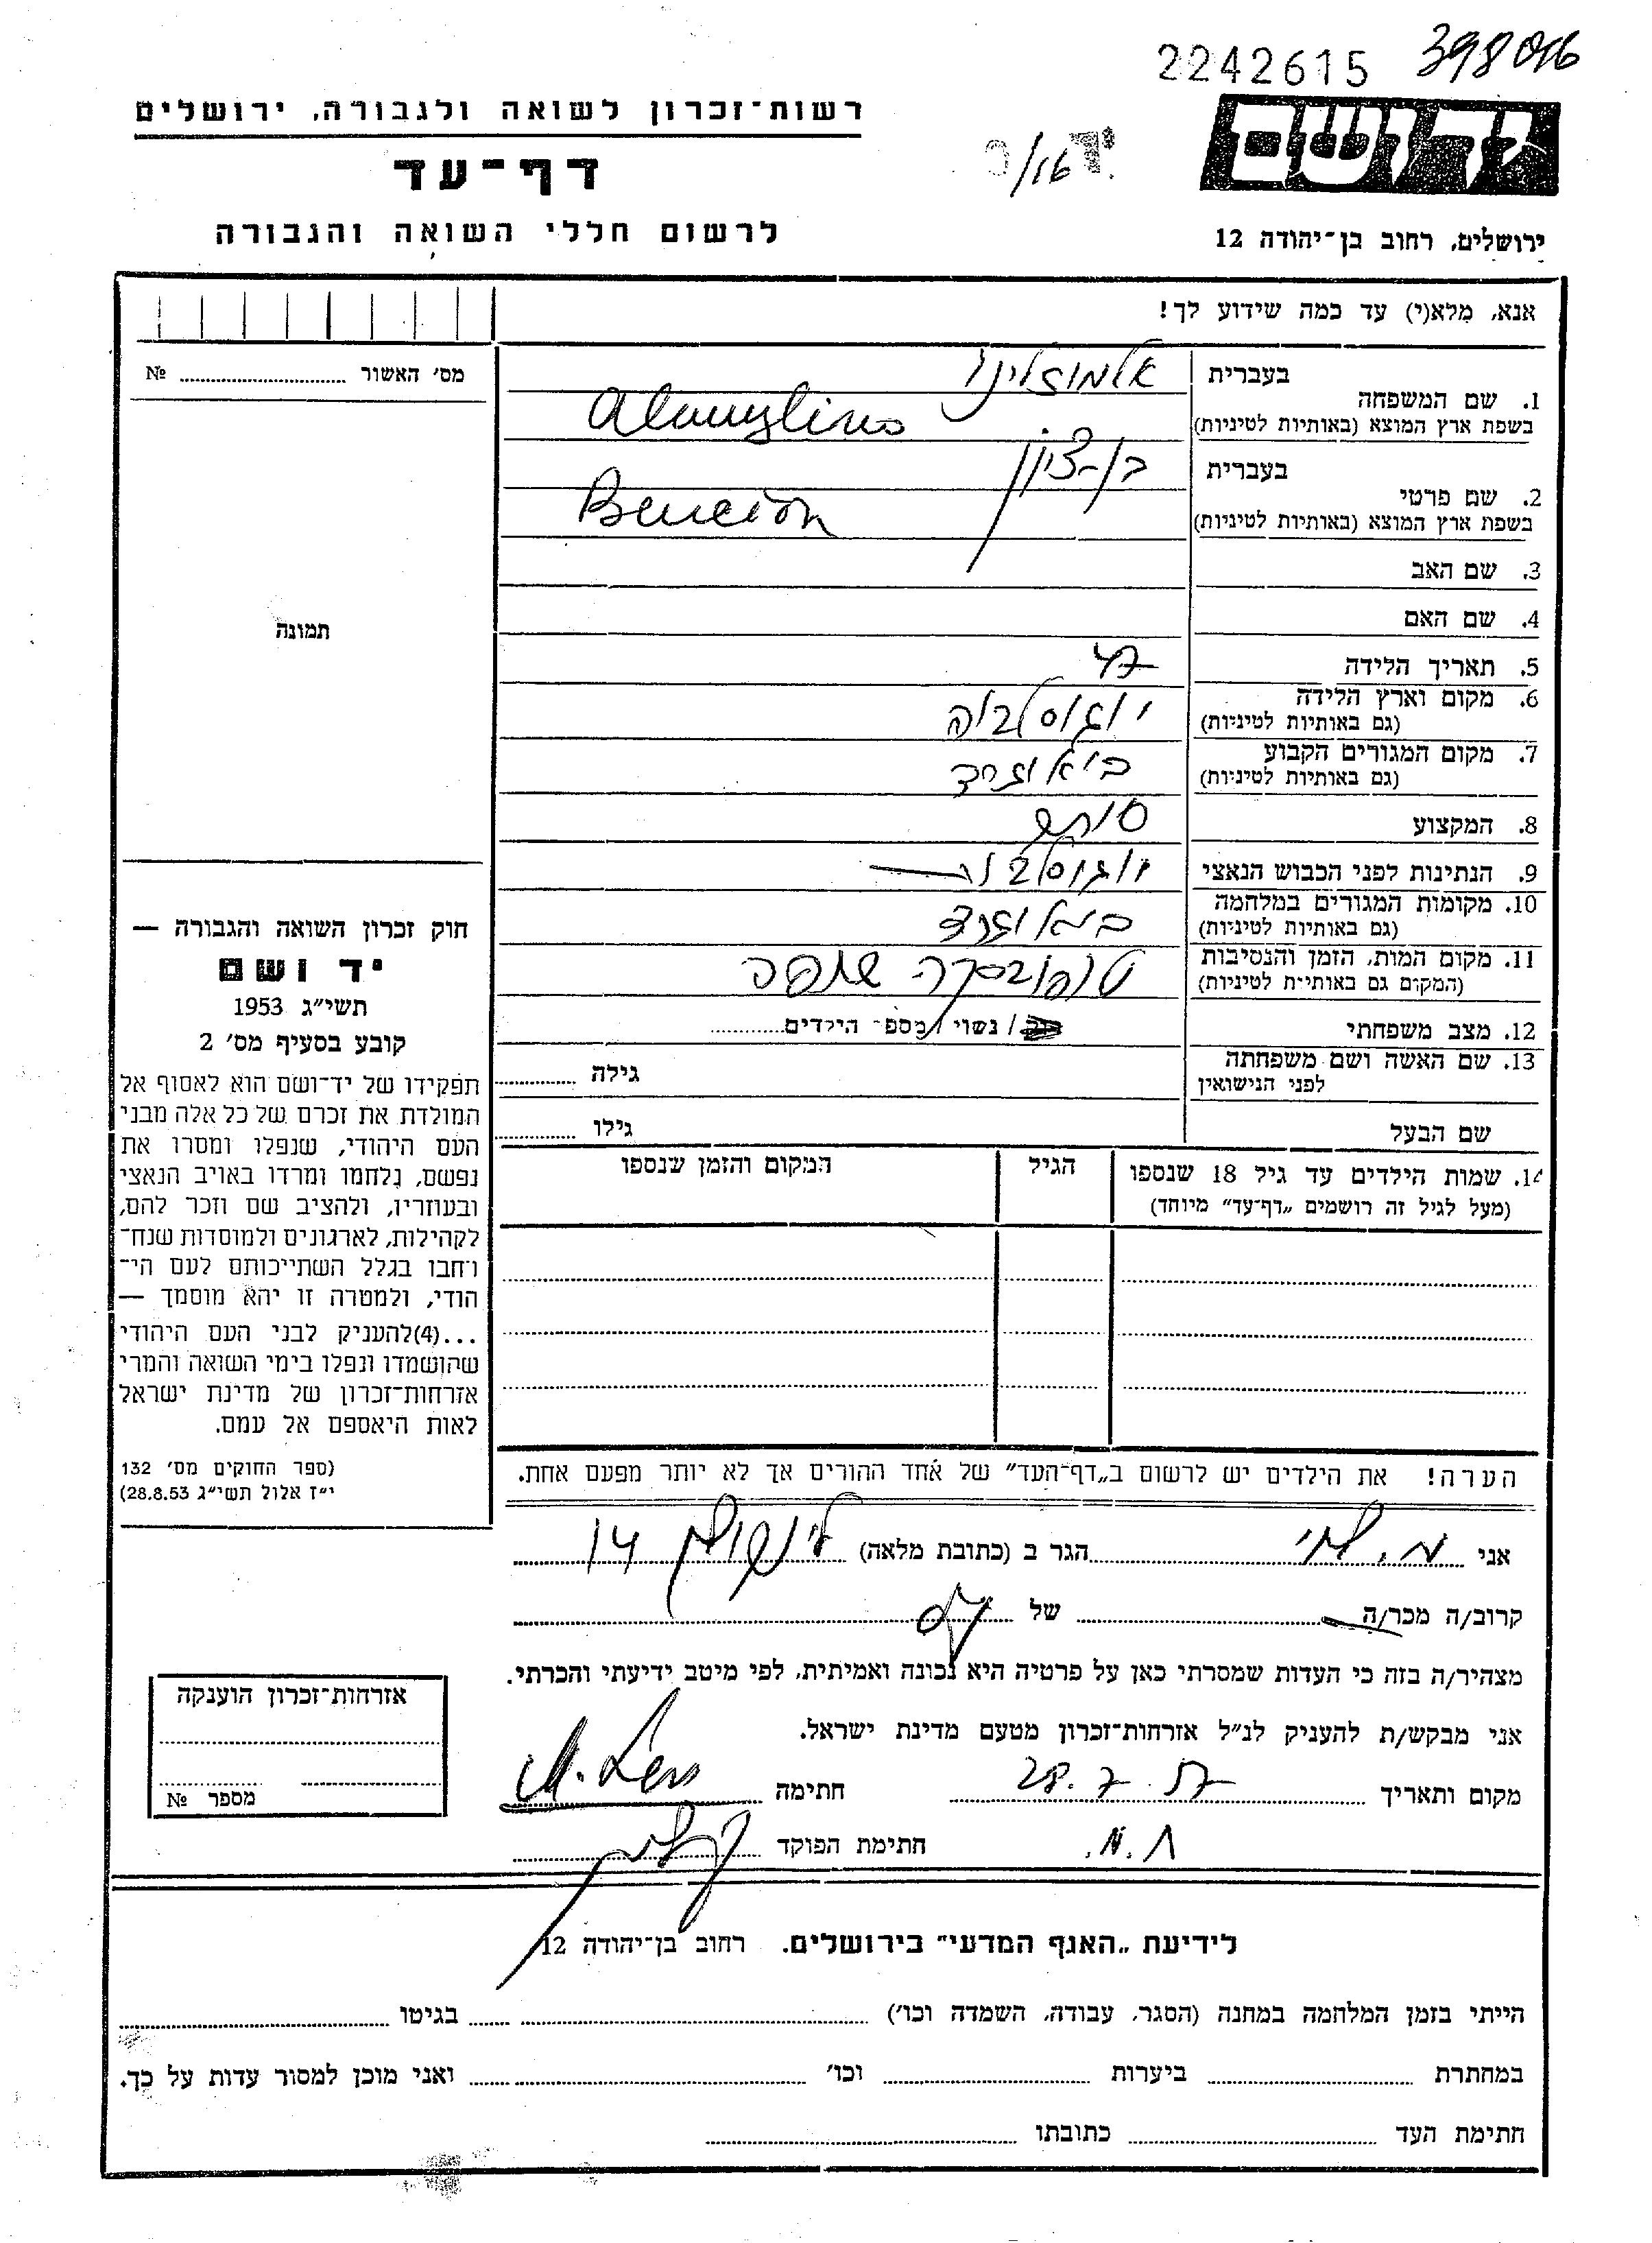 2242615 398016
רשות־זכרון לשואה ולגבורה, ירושלים
דף־עד
לרשום חללי השואה והגבורה
יד ושם
ירושלים, רחוב בן־יהודה 12
אנא, מלא(י) עד כמה שידוע לך!
מס׳ האשור № ........
תמונה
1. שם המשפחה
בעברית אלמוזלינו
בשפת ארץ המוצא (באותיות לטיניות) Almuzlino
2. שם פרטי
בעברית בן-ציון
בשפת ארץ המוצא (באותיות לטיניות) Bencion
3. שם האב
4. שם האם
5. תאריך הלידה 47
6. מקום וארץ הלידה יוגוסלביה
(גם באותיות לטיניות)
7. מקום המגורים הקבוע ביאוגרד
(גם באותיות לטיניות)
8. המקצוע סוחר
9. הנתינות לפני הכבוש הנאצי יוגוסלבי
10. מקומות המגורים במלחמה ביאוגרד
(גם באותיות לטיניות)
11. מקום המות, הזמן והנסיבות טופובסקה שופה
(המקום גם באותיות לטיניות)
12. מצב משפחתי / נשוי / מספר הילדים ........
13. שם האשה ושם משפחתה גילה ........
לפני הנישואין
שם הבעל גילו ........
14. שמות הילדים עד גיל 18 שנספו הגיל המקום והזמן שנספו
(מעל לגיל זה רושמים „דף־עד״ מיוחד)
הערה! את הילדים יש לרשום ב„דף־העד״ של אחד ההורים אך לא יותר מפעם אחת.
חוק זכרון השואה והגבורה —
יד ושם
תשי״ג 1953
קובע בסעיף מס׳ 2
תפקידו של יד־ושם הוא לאסוף אל
המולדת את זכרם של כל אלה מבני
העם היהודי, שנפלו ומסרו את
נפשם, נלחמו ומרדו באויב הנאצי
ובעוזריו, ולהציב שם וזכר להם,
לקהילות, לארגונים ולמוסדות שנח־
רחבו בגלל השתייכותם לעם הי־
הודי, ולמטרה זו יהא מוסמך —
...(4)להעניק לבני העם היהודי
שהושמדו ונפלו בימי השואה והמרי
אזרחות־זכרון של מדינת ישראל
לאות היאספם אל עמם.
(ספר החוקים מס׳ 132
י״ז אלול תשי״ג 28.8.53)
אני מ. לוי הגר ב (כתובת מלאה) 14
קרוב/ה מכר/ה ........ של ........
מצהיר/ה בזה כי העדות שמסרתי כאן על פרטיה היא נכונה ואמיתית, לפי מיטב ידיעתי והכרתי.
אני מבקש/ת להעניק לנ״ל אזרחות־זכרון מטעם מדינת ישראל.
מקום ותאריך 28. 7. 57 חתימה M. Levi
חתימת הפוקד
אזרחות־זכרון הוענקה
מספר №
לידיעת „האגף המדעי״ בירושלים. רחוב בן־יהודה 12
הייתי בזמן המלחמה במחנה (הסגר, עבודה, השמדה וכו׳) ........ בגיטו ........
במחתרת ........ ביערות ........ וכו׳ ........ ואני מוכן למסור עדות על כך.
חתימת העד ........ כתובתו ........